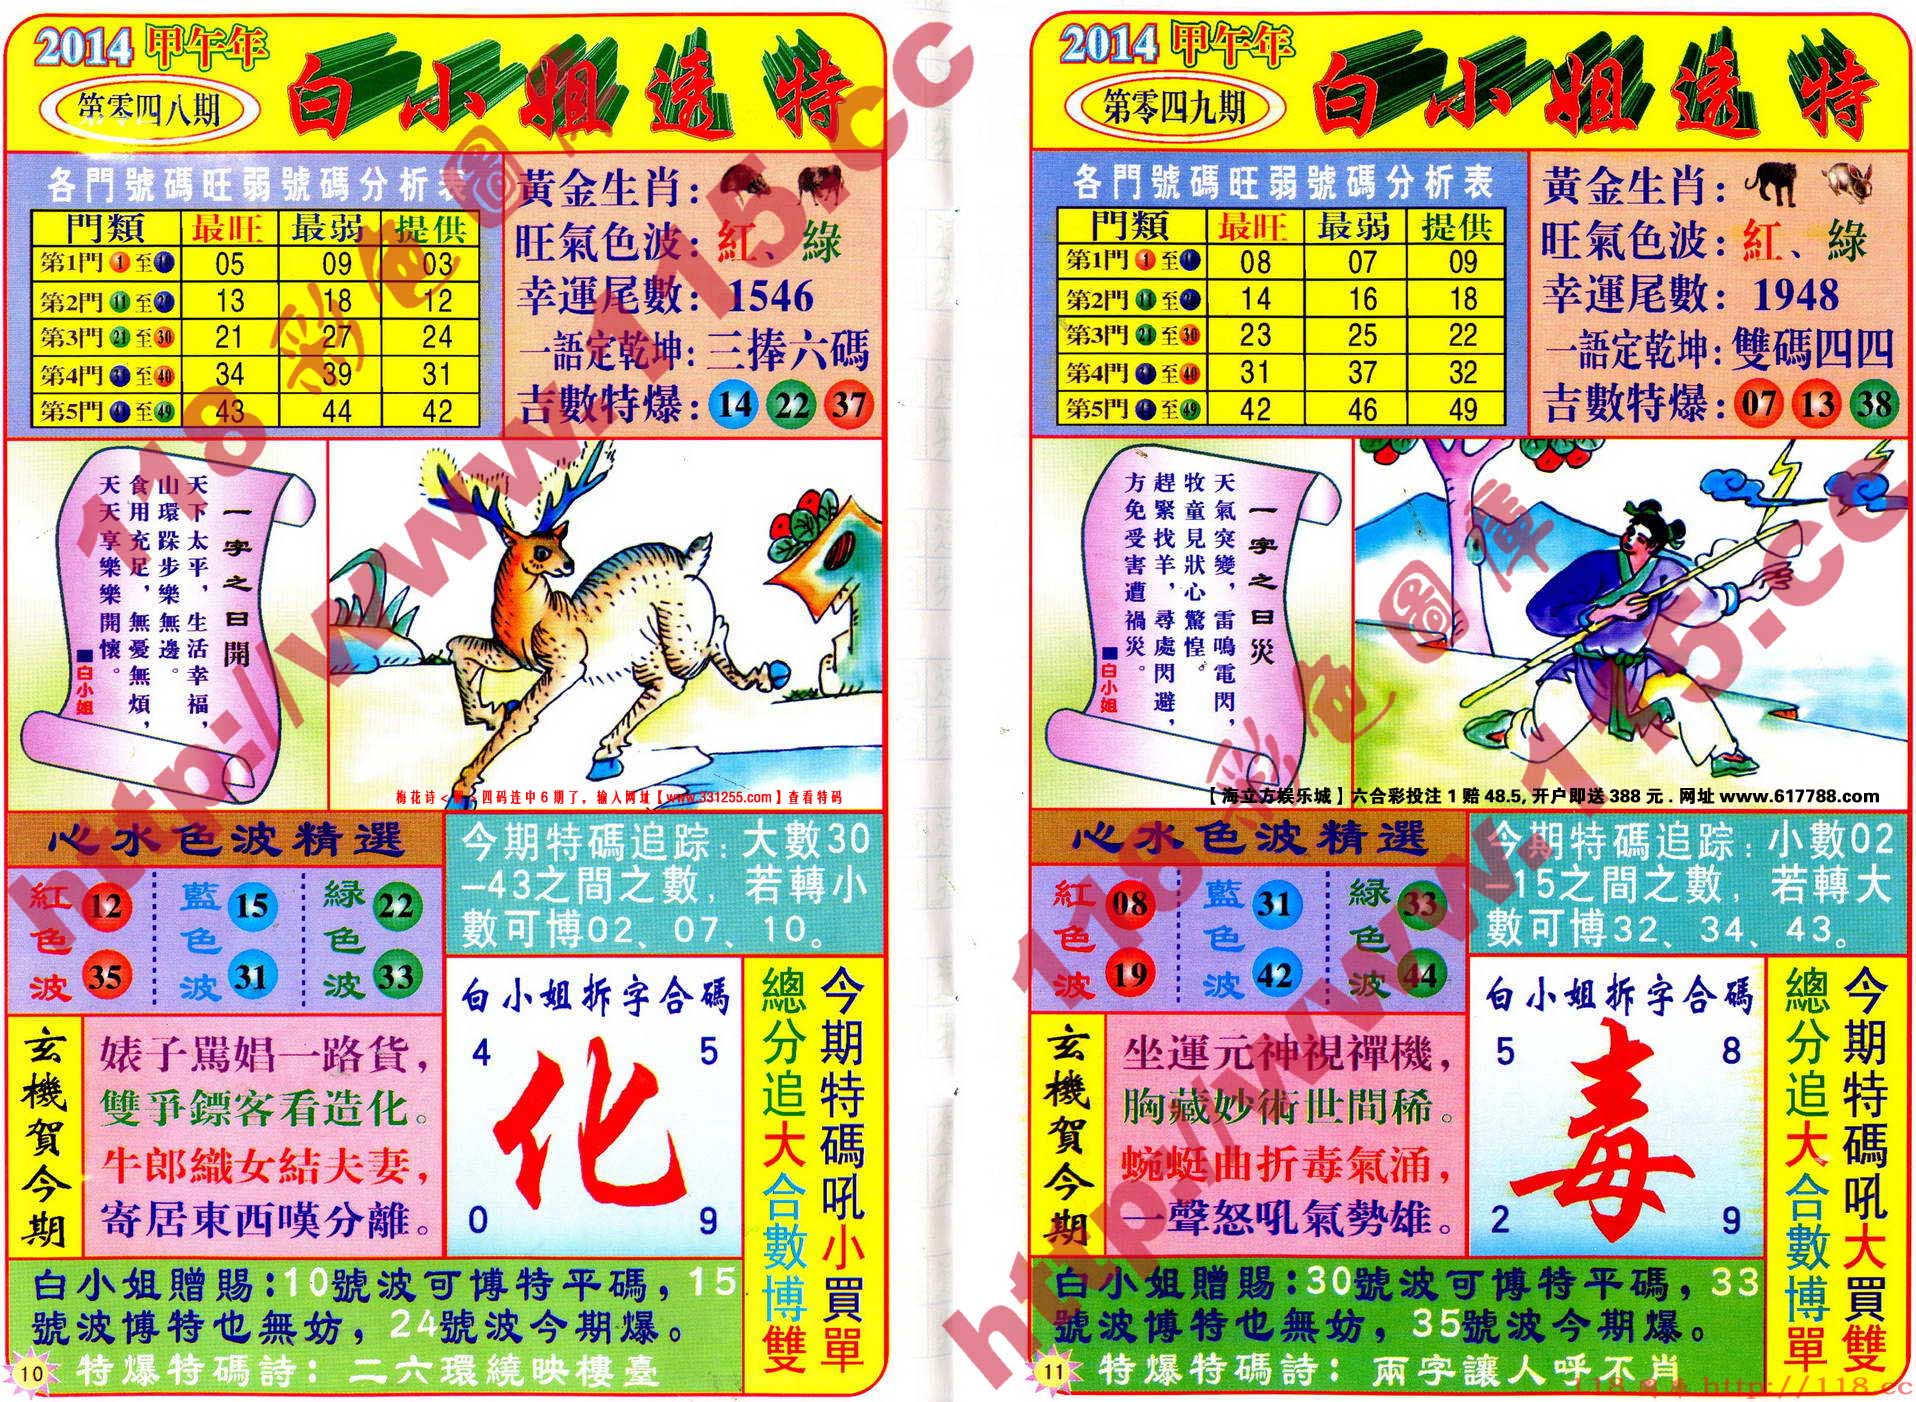 2014 甲午年
第零四八期
白小姐透特
各門號碼旺弱號碼分析表
門類 最旺 最弱 提供
第1門 1 至 10 05 09 03
第2門 11 至 20 13 18 12
第3門 21 至 30 21 27 24
第4門 31 至 40 34 39 31
第5門 41 至 49 43 44 42
黃金生肖:
旺氣色波: 紅、綠
幸運尾數: 1546
一語定乾坤: 三捧六碼
吉數特爆: 14 22 37
一字之曰開
天下太平，生活幸福，
山環跺步樂無邊。
食用充足，無憂無煩，
天天享樂樂開懷。
■白小姐
四码连中6期了, 输入网址【www.331255.com】查看特码
心水色波精選
紅色波 12 35
藍色波 15 31
綠色波 22 33
今期特碼追踪: 大數30
-43之間之數, 若轉小
數可博02、07、10。
玄機賀今期
婊子罵娼一路貨，
雙爭鏢客看造化。
牛郎織女結夫妻，
寄居東西嘆分離。
白小姐拆字合碼
4 5
化
0 9
今期特碼吼小買單
總分追大合數博雙
白小姐贈賜:10號波可博特平碼，15
號波博特也無妨，24號波今期爆。
特爆特碼詩: 二六環繞映樓臺
10
2014 甲午年
第零四九期
白小姐透特
各門號碼旺弱號碼分析表
門類 最旺 最弱 提供
第1門 1 至 10 08 07 09
第2門 11 至 20 14 16 18
第3門 21 至 30 23 25 22
第4門 31 至 40 31 37 32
第5門 41 至 49 42 46 49
黃金生肖:
旺氣色波: 紅、綠
幸運尾數: 1948
一語定乾坤: 雙碼四四
吉數特爆: 07 13 38
一字之曰災
天氣突變，雷鳴電閃，
牧童見狀心驚惶。
趕緊找羊，尋處閃避，
方免受害遭禍災。
■白小姐
【海立方娱乐城】六合彩投注1赔48.5, 开户即送388元. 网址www.617788.com
心水色波精選
紅色波 08 19
藍色波 31 42
綠色波 33 44
今期特碼追踪: 小數02
-15之間之數, 若轉大
數可博32、34、43。
玄機賀今期
坐運元神視禪機，
胸藏妙術世間稀。
蜿蜓曲折毒氣涌，
一聲怒吼氣勢雄。
白小姐拆字合碼
5 8
毒
2 9
今期特碼吼大買雙
總分追大合數博單
白小姐贈賜:30號波可博特平碼，33
號波博特也無妨，35號波今期爆。
特爆特碼詩: 兩字讓人呼不肖
11
118彩色圖庫
http://www.115.cc
118彩色圖庫
http://www.115.cc
http://118.cc